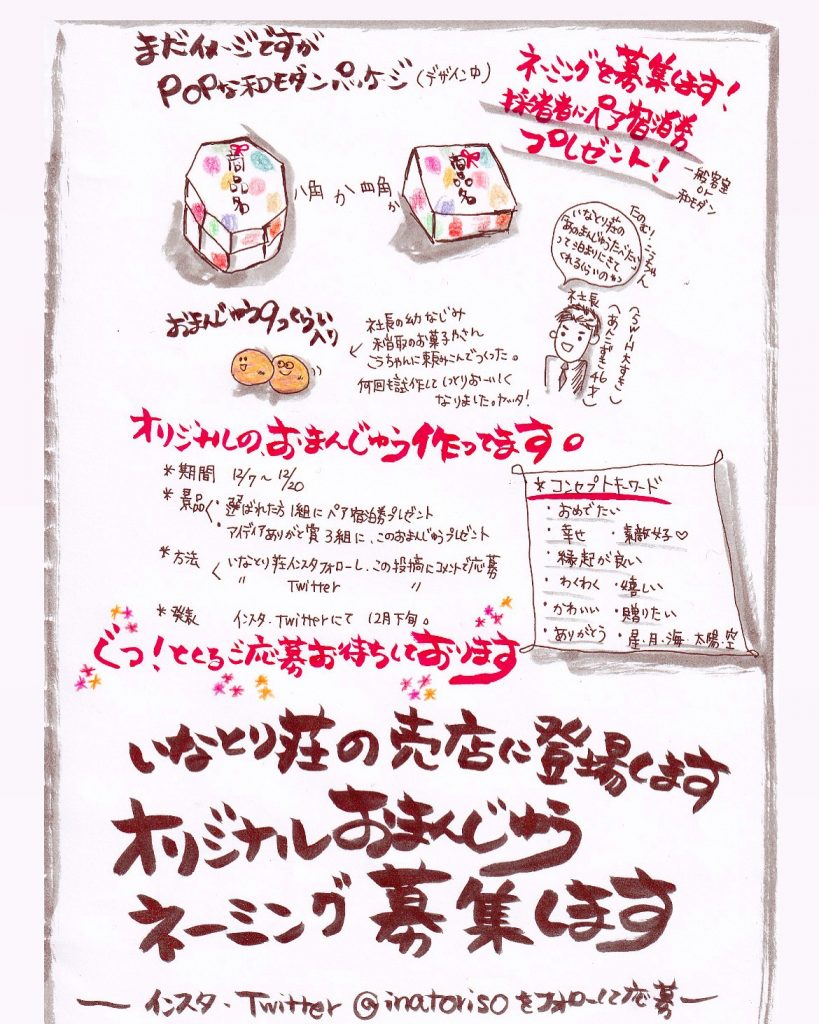 まだイメージですが
POPな和モダンパッケージ(デザイン中)
ネーミングを募集します!
採用者にペア宿泊券
プレゼント!
一般客室
or
和モダン
商品名
八角か四角か
商品名
たのむよ、こうちゃん
いなとり荘の
あのまんじゅうたべたい
って泊まりにきて
くれるくらいのか
社長
あんこずき46才
おまんじゅう9つくらい
入り
社長の幼なじみ
稲取のお菓子やさん
こうちゃんに頼みこんでつくった。
何回も試作してしっとりおーいしく
なりました。ヤッタ!
オリジナルの、おまんじゅう作ってます。
*期間 12/7~12/20
*景品く・選ばれた方1組にペア宿泊券プレゼント
・アイディアありがと賞3組に、このおまんじゅうプレゼント
*方法 いなとり荘インスタフォローし、この投稿にコメントで応募
〃 Twitter 〃
*発表 インスタ・Twitterにて 12月下旬。
*コンセプトキーワード
・おめでたい
・幸せ ・素敵♡
・縁起が良い
・わくわく ・嬉しい
・かわいい ・贈りたい
・ありがとう ・星・月・海・太陽・空
ぐっ!とくるご応募お待ちしております
いなとり荘の売店に登場します
オリジナルおまんじゅう
ネーミング募集します
ー インスタ・Twitter @inatorisoをフォローして応募 ー